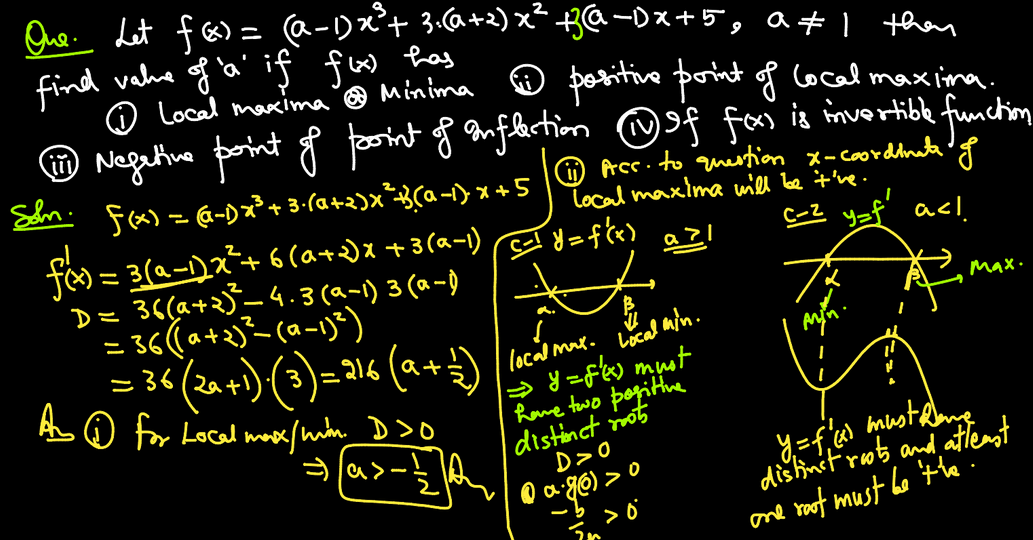 Que. Let f(x) = (a-1)x³ + 3.(a+2)x² + 3(a-1)x + 5, a ≠ 1 then
find value of 'a' if f(x) has
(i) Local maxima Minima (ii) positive point of local maxima.
(iii) Negative point of point of inflection (iv) If f(x) is invertible function
Soln. f(x) = (a-1)x³ + 3.(a+2)x² + 3(a-1).x + 5
f'(x) = 3(a-1)x² + 6(a+2)x + 3(a-1)
D = 36(a+2)² - 4.3(a-1) 3(a-1)
= 36((a+2)² - (a-1)²)
= 36(2a+1).(3) = 216(a+1/2)
An (i) for Local max/min. D>0
⇒ a > -1/2 An
(ii) Acc. to question x-coordinate of
local maxima will be +'ve.
C-1 y = f'(x) a>1
α β
local max. Local min.
⇒ y = f'(x) must
have two positive
distinct roots
D>0
a.g(0) > 0
-b/2a > 0
C-2 y=f' a<1.
α β Max.
Min.
y = f'(x) must have
distinct roots and atleast
one root must be +'ve.